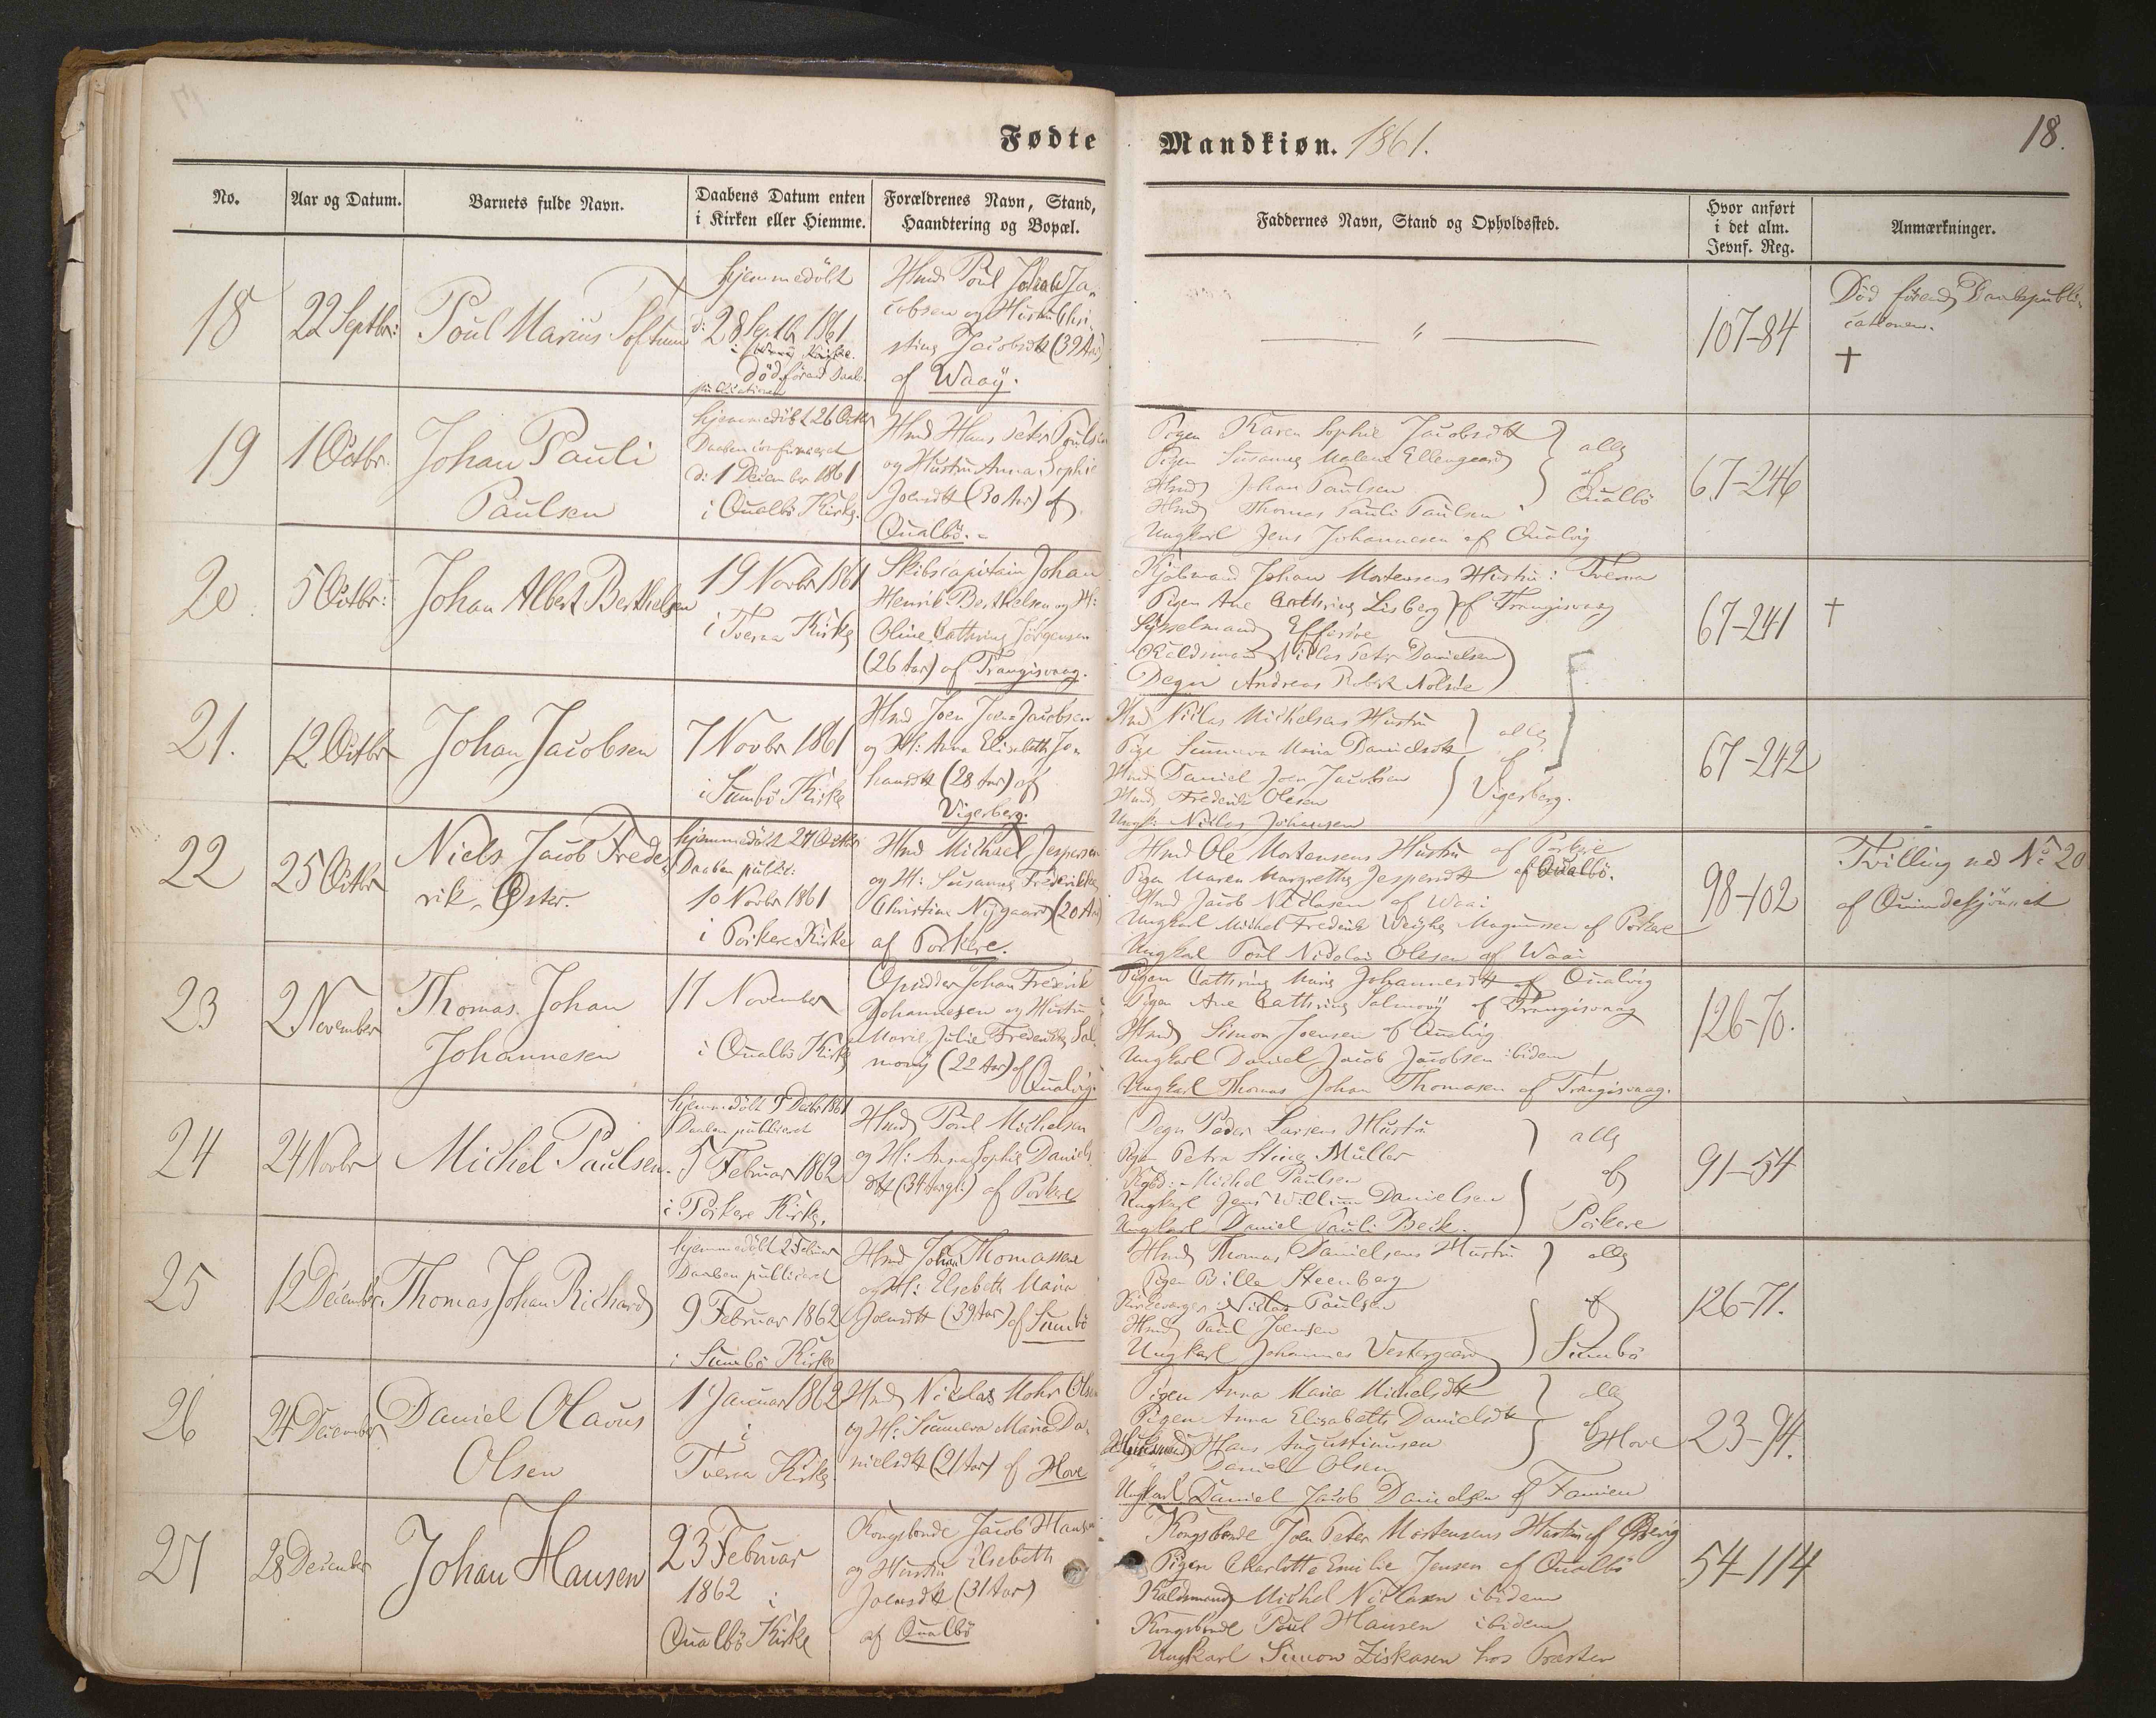 Fødte
Mandkiøn. 1861.
18.
No.
Aar og Datum.
Barnets fulde Navn.
Daabens Datum enten
i Kirken eller Hiemme.
Forældrenes Navn, Stand,
Haandtering og Bopæl.
Faddernes Navn, Stand og Opholdssted.
Hvor anført
i det alm.
Jevnf. Reg.
Anmærkninger.
18
22 Septbr:
Poul Marius Toftum
hjemmedöbt
d: 28 Septb 1861
i Waaÿ Kirke.
död förend Daab
publicationen
Hmd. Poul Johan Ja„
cobsen og Hustru Chri„
stine Jacobsdtt (39 Aar)
af Waaÿ.
"
107-84
Död förend Daabspubli„
cationen.
†
19
1 Octbr.
Johan Pauli
Paulsen
hjemmedöbt 26 Octbr
Daaben confirmeret
d: 1 December 1861
i Qualbö Kirke.
Hmd Hans Peter Poulsen
og Hustru Anna Sophie
Joensdtt (30 Aar) af
Qualbö.
Pigen Karen Sophie Jacobsdtt
Pigen Susanne Malene Ellengaard
Hmd Johan Paulsen
Hmd Thomas Pauli Paulsen
alle
af
Qualbö
Ungkarl Jens Johannesen af Qualvig
67-246
20
5 Octbr:
Johan Albert Berthelsen
19 Novbr 1861
i Tveraa Kirke
Skibscapitain Johan
Henrik Berthelsen og H:
Oline Cathrine Jörgensen
(26 Aar) af Trangisvaag.
Kjöbmand Johan Mortensens Hustru: Tveraa
Pigen Ane Cathrine Lisberg af Trangisvaag
Sysselmand Effersöe
Niclas Peter Danielsen
Degn Andreas Robert Nolsöe
67-241
†
21.
12 Octbr
Johan Jacobsen
7 Novbr 1861
i Sumbö Kirke
Hmd Joen Joen Jacobsen
og H: Anna Elisabeth Jo„
hansdtt (28 Aar) af
Vigerberg.
Hmd Niclas Michelsens Hustru
Pige Sunneva Maria Danielsdtt
Hmd Daniel Joen Jacobsen
Hmd Frederik Olesen
Ungk: Niclas Johansen
alle
af
Vigerberg.
67-242
22
25 Octbr
Niels Jacob Frede„
rik Öster.
hjemmedöbt 27 Octbr
Daaben public:
10 Novbr 1861
i Porkere Kirke
Hmd Michael Jespersen
og H: Susanne Frederikke
Christine Nygaard (20 Aar)
af Porkere.
Hmd Ole Mortensens Hustru af Porkere
Pigen Maren Margrethe Jespersdtt af Qualbö.
Hmd Jacob Niclasen af Waai
Ungkarl Michel Frederik Weyhe Magnussen af Porkere
Ungkarl Poul Nicolai Olesen af Waai
98-102
Tvilling med No 20
af Quindekjönnet
23
2 November
Thomas Johan
Johannesen
17 November
i Qualbö Kirke
Opsidder Johan Frederik
Johannesen og Hustru
Marie Julie Frederikke Sal„
monÿ (22 Aar) af Qualvig.
Pigen Cathrine Marie Johannesdtt af Qualvig
Pigen Ane Cathrine Salmonÿ af Trangisvaag
Hmd Simon Joensen af Qualvig
Ungkarl Daniel Jacob Jacobsen ibidem
Ungkarl Thomas Johan Thomasen af Trangisvaag.
126-70.
24
24 Novbr
Michel Paulsen.
hjemmedöbt 9 Decbr 1861
Daaben publiceret
5 Februar 1862
i Porkere Kirke.
Hmd Poul Michelsen
og H: Anna Sophie Daniels„
dtt (34 Aar gl:) af Porkere
Degn Peder Larsens Hustru
Pigen Petra Stine Müller
Michel Paulsen
Ungkarl Jens Willum Danielsen
Ungkarl Daniel Pauli Beck.
alle
af
Porkere
91-54
25
12 December.
Thomas Johan Richard
hjemmedöbt 2 Februar
Daaben publiceret
9 Februar 1862
i Sumbö Kirke
Hmd Johan Thomassen
og H: Elsebeth Maria
Joensdtt (39 Aar) af Sumbö
Hmd Thomas Danielsens Hustru
Pigen Bille Steenberg
Kirkeværger Niclas Paulsen
Hmd Paul Joensen
Ungkarl Johannes Vestergaard
alle
af
Sumbö
126-71.
26
24 December
Daniel Olavus
Olsen
1 Januar 1862
i
Tveraa Kirke
Hmd Niclas Mohr Olsen
og H: Sunneva Maria Da„
nielsdtt (21 Aar) af Hove
Pigen Anna Maria Michelsdtt
Pigen Anna Elisabeth Danielsdtt
Huusmand Hans Augustinussen
" Daniel Olsen
alle
af
Hove
Ungkarl Daniel Jacob Danielsen af Famien
23-94.
27
28 December
Johan Hansen
23 Februar
1862 i
Qualbö Kirke
Kongsbonde Jacob Hansen
og Hustru Elsebeth
Joensdtt (31 Aar)
af Qualbö
Kongsbonde Joen Peter Mortensens Hustru af Öravig
Pigen Charlotte Emilie Jensen af Qualbö
Michel Niclasen ibidem
Kongsbonde Poul Hansen ibidem
Ungkarl Simon Ziskasen hos Præsten
54-114